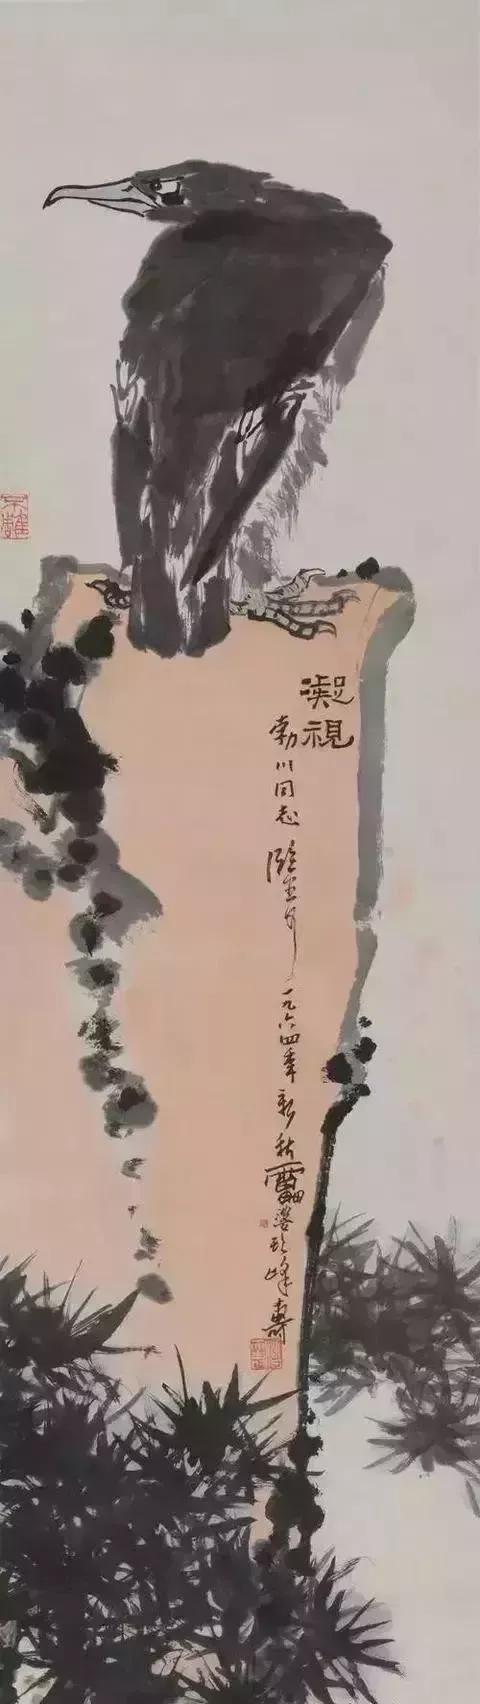 凝視
勃川同志
一九六四年新秋雷婆頭峰壽
不雕